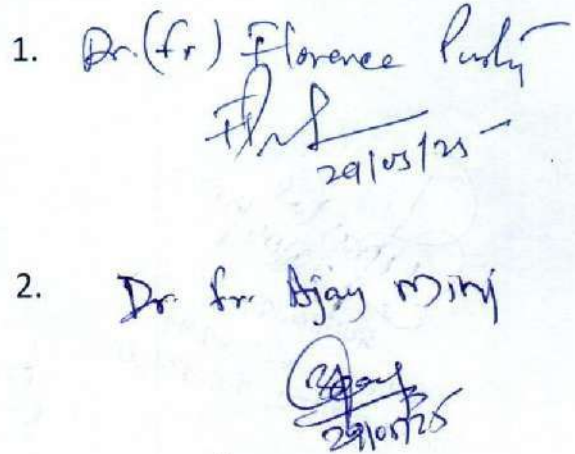 1. Dr. (fr) Florence
29/05/25
2. Dr. fr. Ajay Minj
29/05/25